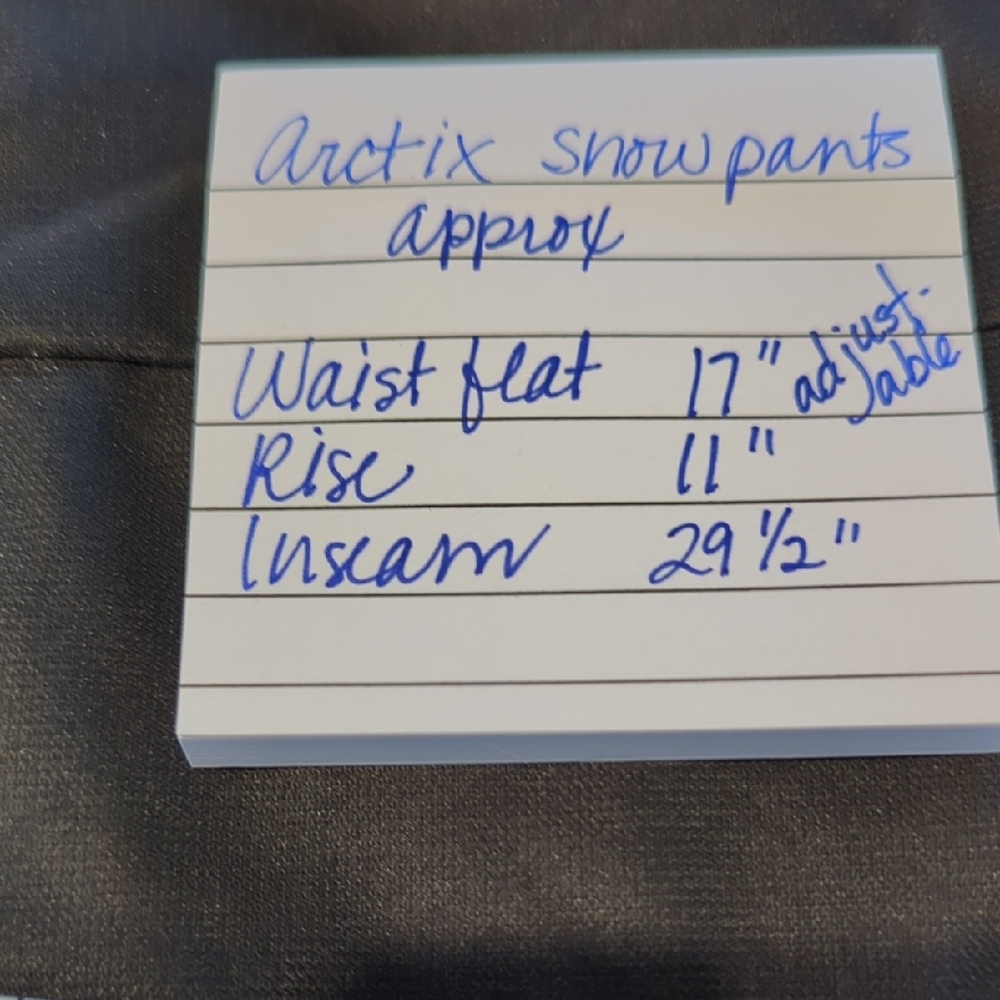 Arctix snow pants
approx
Waist flat 17" adjust-
able
Rise 11"
Inseam 29 1/2"